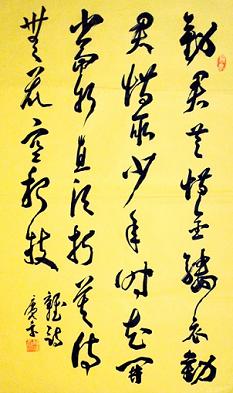 勸君莫惜金縷衣勸
君惜取少年时花開
當折直須折莫待
無花空折枝